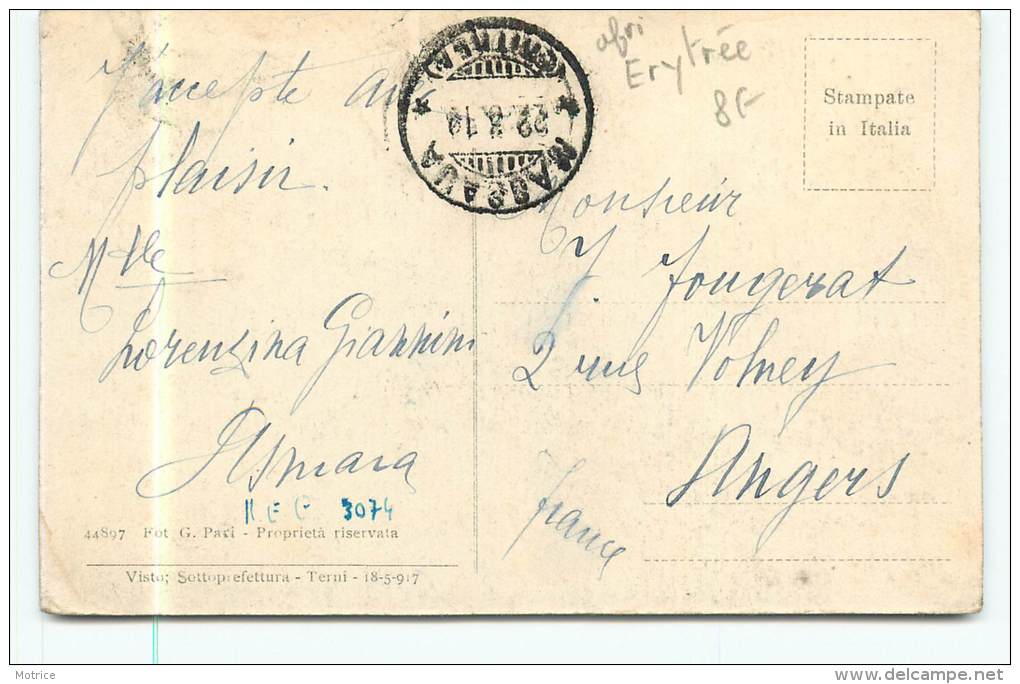 J'accepte avec
plaisir.
Mlle
Lorenzina Giannini
Asmara
MEC 3074
44897 Fot G. Pavi - Proprietà riservata
Visto; Sottoprefettura - Terni - 18-5-917
MASSAUA
(ERITREA)
afri
Erytrée
8F
Stampate
in Italia
Monsieur
J. Fougerat
2 rue Volney
Angers
france
Motrice
www.delcampe.net